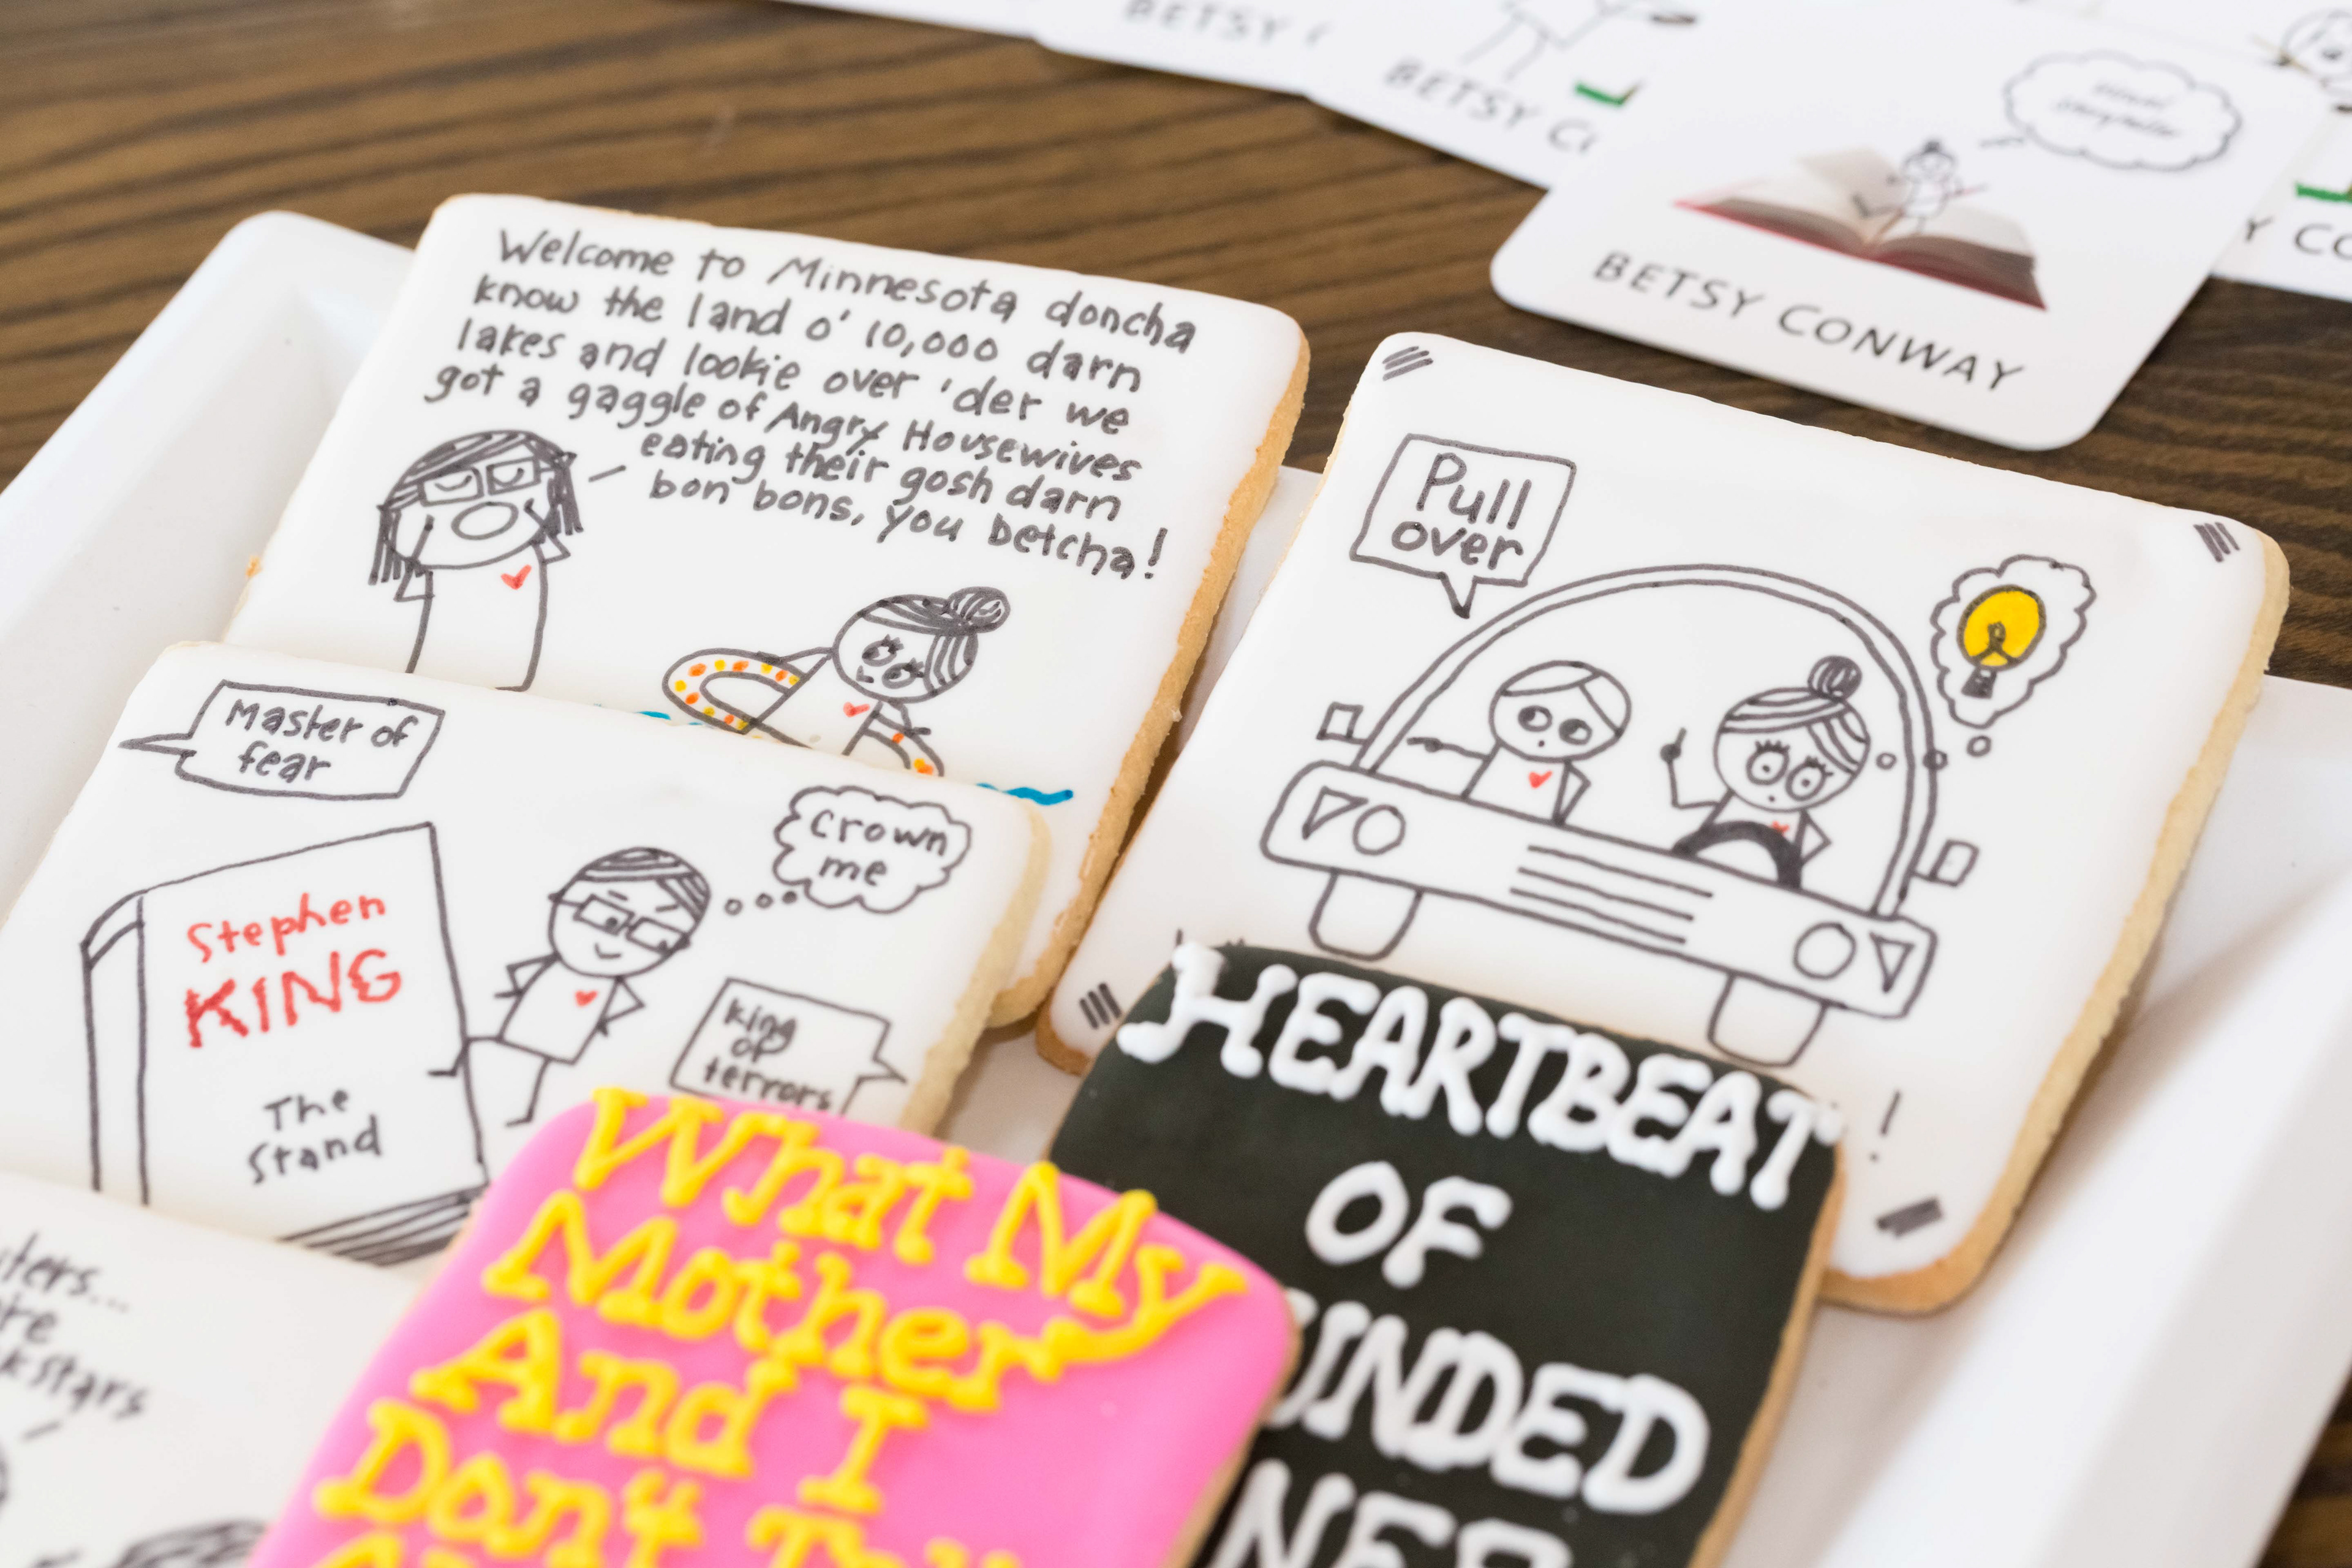 BETSY
BETSY
visual
storyteller
BETSY CONWAY
Welcome to Minnesota doncha
know the land o' 10,000 darn
lakes and lookie over 'der we
got a gaggle of Angry Housewives
eating their gosh darn
bon bons, you betcha!
Pull
over
Master of
fear
Crown
me
Stephen
KING
The
Stand
King
of
terrors
HEARTBEAT
OF
What My
Mother
And I
Don't